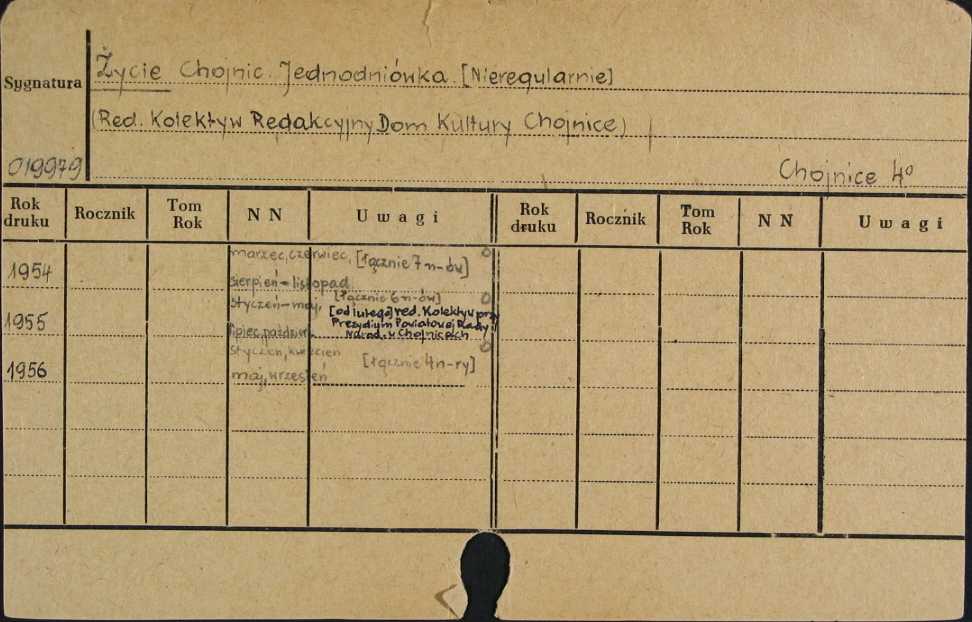 Sygnatura
Życie Chojnic. Jednodniówka. [Nieregularnie]
(Red. Kolektyw Redakcyjny Dom Kultury Chojnice)
019979
Chojnice 4º
Rok druku Rocznik Tom Rok N N Uwagi Rok druku Rocznik Tom Rok N N Uwagi
1954 marzec, czerwiec, [łącznie 7 n-ów]
sierpień-listopad
1955 styczeń-maj, [łącznie 6 n-ów]
[od lutego] red. Kolektyw przy
Prezydium Powiatowej Rady
lipiec, paździer. Narod. w Chojnicach
1956 styczeń, kwiecień [łącznie 4 n-ry]
maj, wrzesień